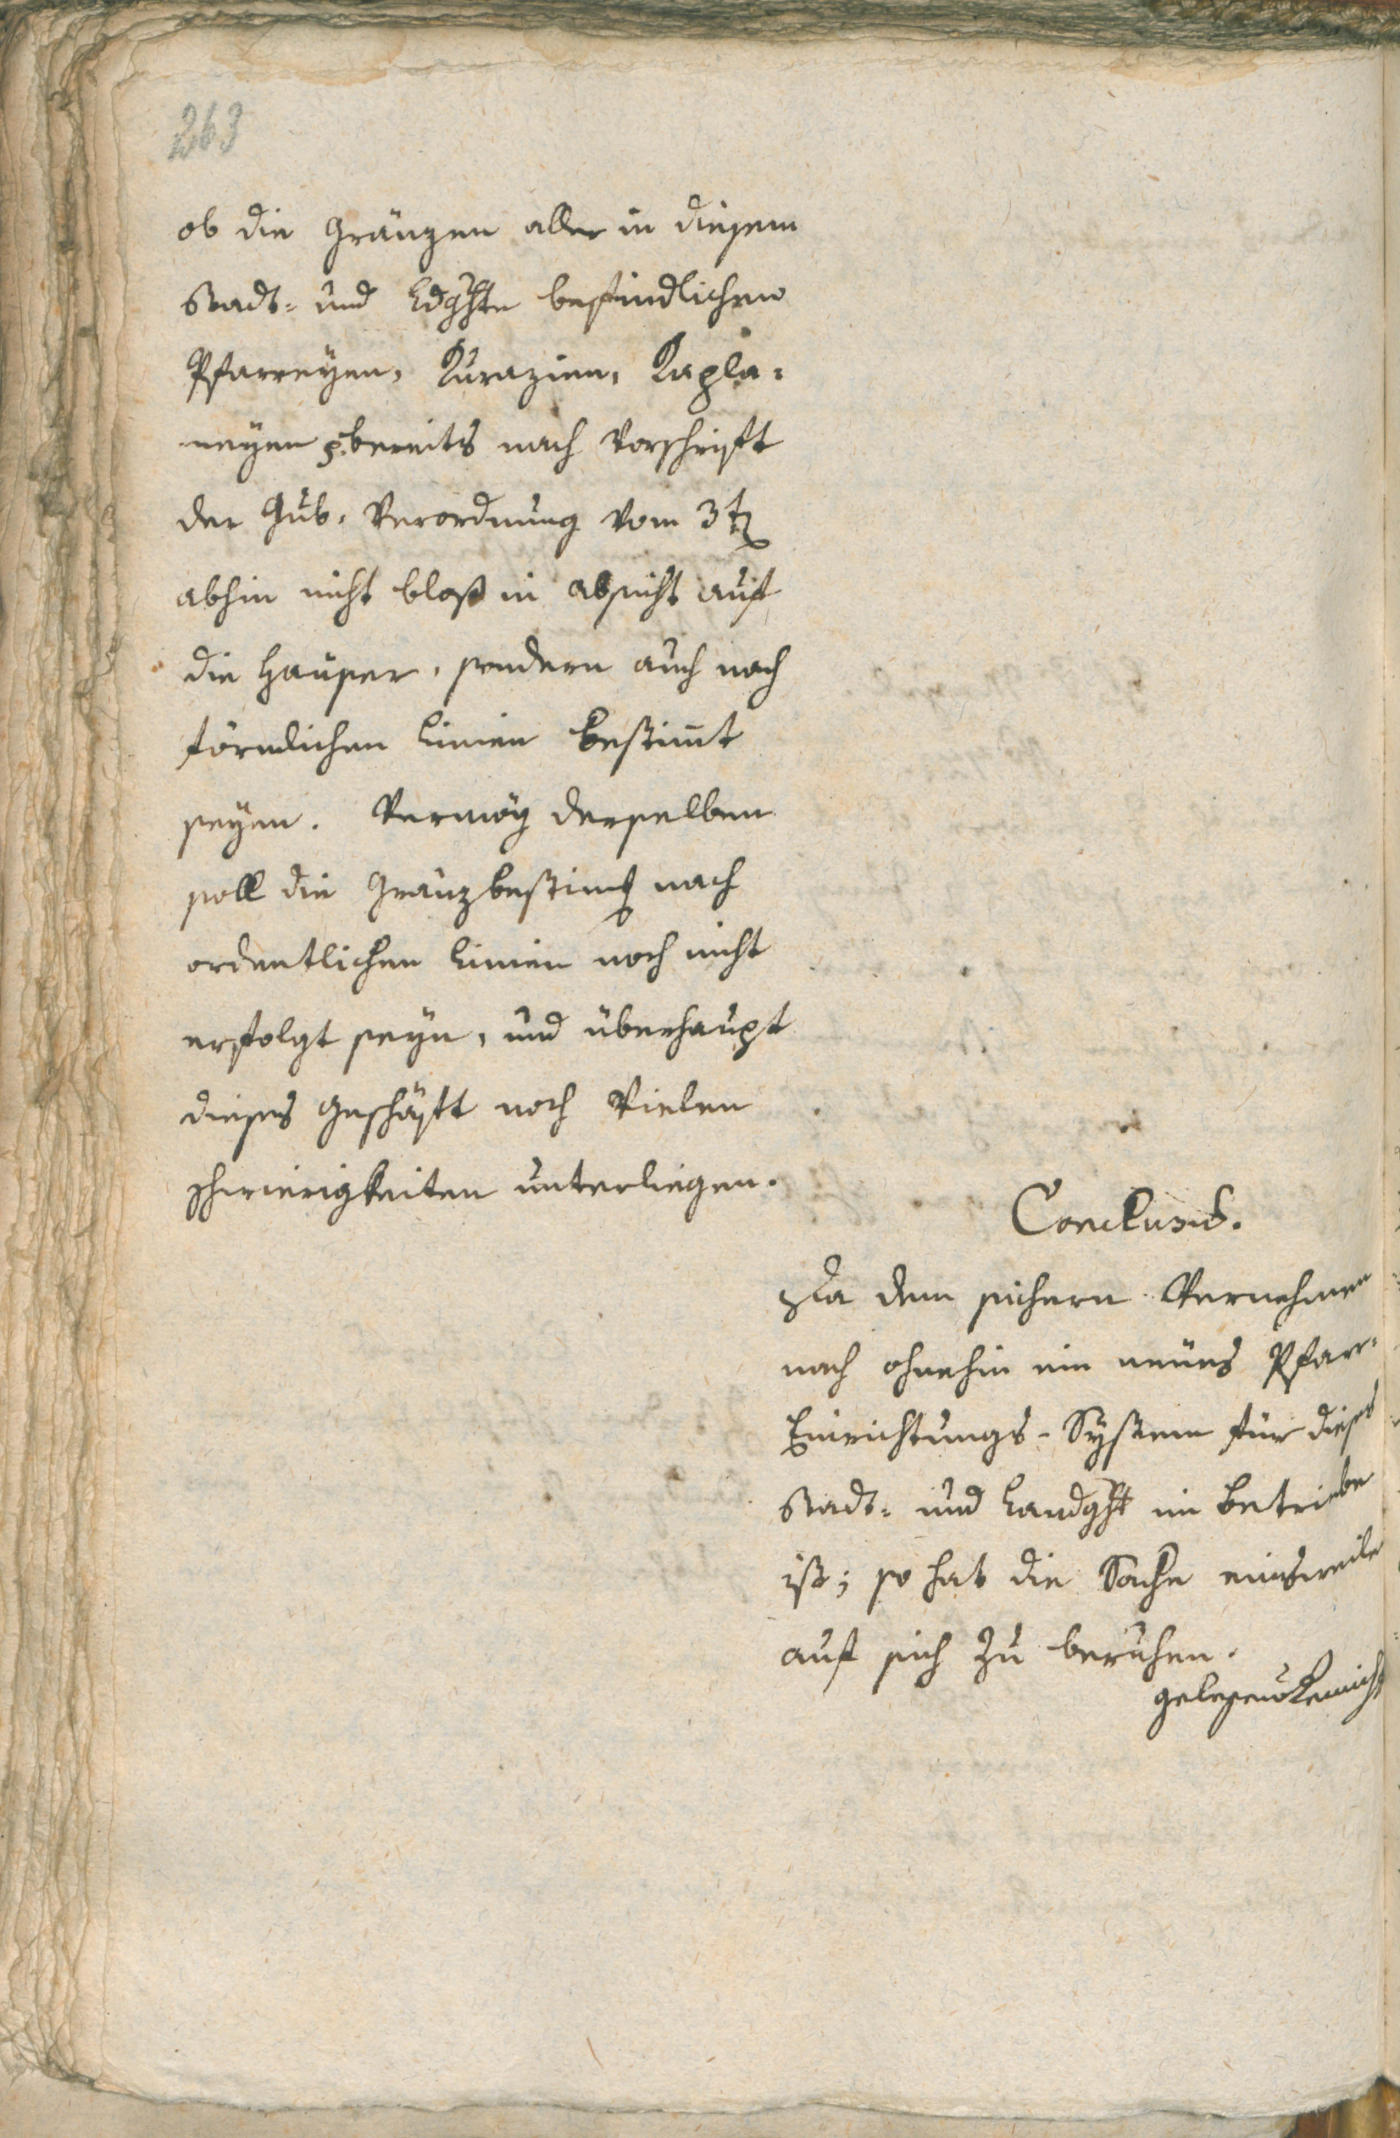 263
ob die Gränzen aller in diesem
Stadt- und Ldghte befindlichen
Pfarreyen, Kurazien, Kapla-
neyen p. bereits nach Vorschrift
der Gub. Verordnung vom 3t
abhin nicht bloß in Absicht auf
die Häuser, sondern auch nach
förmlichen Linien bestimt
seyen. Vermög derselben
soll die Gränzbestimg nach
ordentlichen Linien noch nicht
erfolgt seyn, und überhaupt
dieses Geschäft noch Vielen
Schwierigkeiten unterliegen.
Conclusu.
Da dem sichern Vernehmen
nach ohnehin ein neues Pfarr-
Einrichtungs-System für dieses
Stadt- und Landght im Betriebe
ist; so hat die Sache einsweile
auf sich zu beruhen.
gelesen